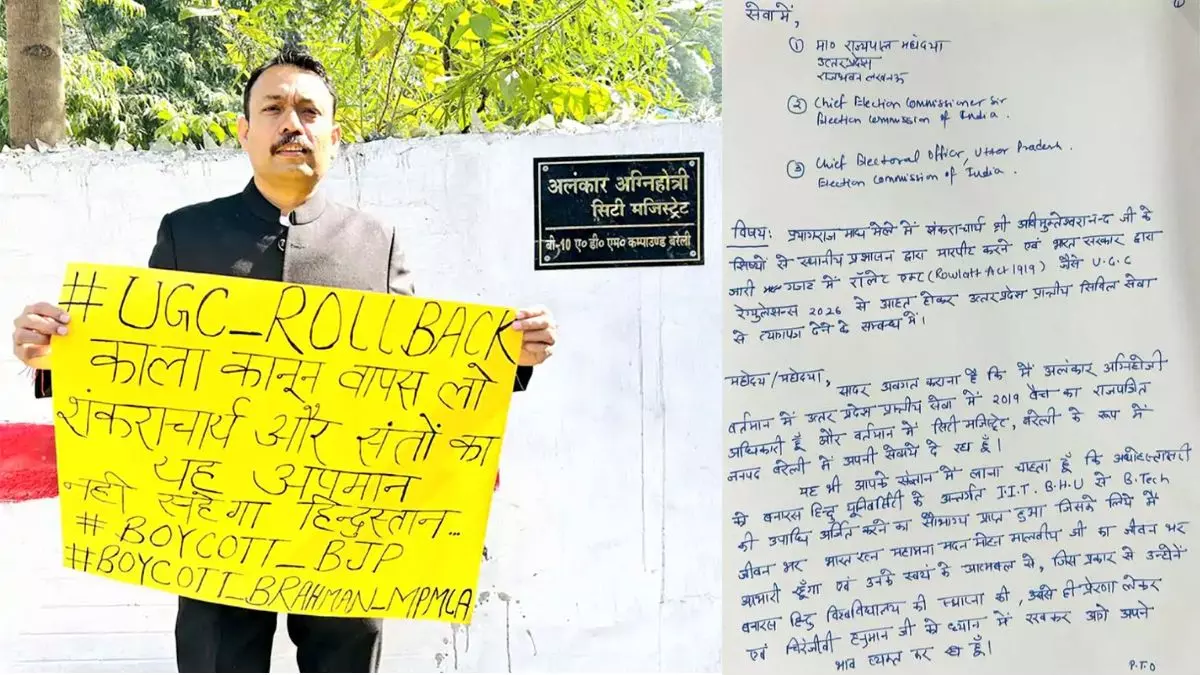 #UGC_ROLLBACK
काला कानून वापस लो
शंकराचार्य और संतों का
यह अपमान
नही सहेगा हिन्दुस्तान...
# BOYCOTT_BJP
#BOYCOTT_BRAHMAN_MPMLA
अलंकार अग्निहोत्री
सिटी मजिस्ट्रेट
बी-10 ए० डी० एम० कम्पाउण्ड बरेली
सेवा में,
① मा० राज्यपाल महोदया
उत्तर प्रदेश
राजभवन लखनऊ
② Chief Election Commissioner Sir
Election Commission of India.
③ Chief Electoral Officer, Uttar Pradesh.
Election Commission of India.
विषय: प्रयागराज माघ मेले में शंकराचार्य श्री अविमुक्तेश्वरानन्द जी के
शिष्यों से स्थानीय प्रशासन द्वारा मारपीट करने एवं भारत सरकार द्वारा
जारी गजट में रॉलेट एक्ट (Rowlatt Act 1919) जैसे U.G.C
रेगुलेसन्स 2026 से आहत होकर उत्तर प्रदेश प्रान्तीय सिविल सेवा
से त्यागपत्र देने के सम्बन्ध में।
महोदय/महोदया,
सादर अवगत कराना है कि मैं अलंकार अग्निहोत्री
वर्तमान में उत्तर प्रदेश प्रान्तीय सेवा में 2019 बैच का राजपत्रित
अधिकारी हूँ और वर्तमान में सिटी मजिस्ट्रेट, बरेली के रूप में
जनपद बरेली में अपनी सेवायें दे रहा हूँ।
यह भी आपके संज्ञान में लाना चाहता हूँ कि अधोहस्ताक्षरी
को बनारस हिन्दू यूनिवर्सिटी के अन्तर्गत I.I.T. B.H.U से B.Tech
की उपाधि अर्जित करने का सौभाग्य प्राप्त हुआ जिसके लिये मैं
जीवन भर भारत रत्न महामना मदन मोहन मालवीय जी का जीवन भर
आभारी रहूँगा एवं उनके स्वयं के आत्मबल से, जिस प्रकार से उन्होंने
बनारस हिन्दु विश्वविद्यालय की स्थापना की, उससे ही प्रेरणा लेकर
एवं चिरंजीवी हनुमान जी को ध्यान में रखकर आगे अपने
भाव व्यक्त कर रहा हूँ।
P.T.O